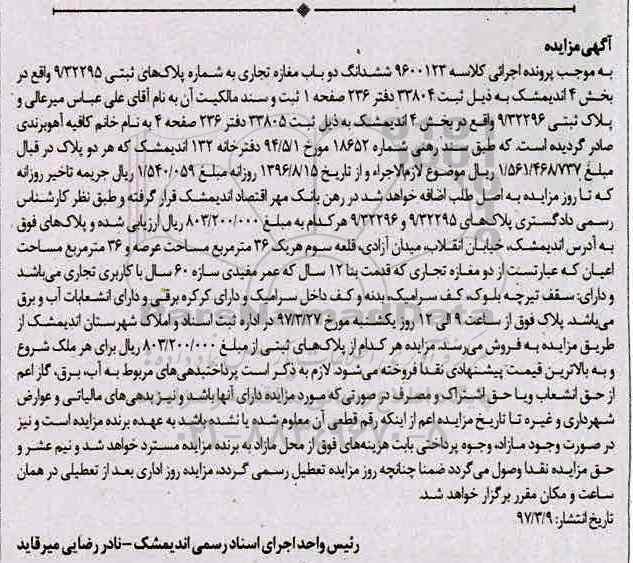 آگهی مزایده
به موجب پرونده اجرائی کلاسه ۹۶۰۰۱۲۳ ششدانگ دو باب مغازه تجاری به شماره پلاک‌های ثبتی ۹/۳۲۲۹۵ واقع در
بخش ۴ اندیمشک به ذیل ثبت ۳۳۸۰۴ دفتر ۲۳۶ صفحه ۱ ثبت و سند مالکیت آن به نام آقای علی عباس میرعالی و
پلاک ثبتی ۹/۳۲۲۹۶ واقع در بخش ۴ اندیمشک به ذیل ثبت ۳۳۸۰۵ دفتر ۲۳۶ صفحه ۴ به نام خانم کافیه آهوبرندی
صادر گردیده است. که طبق سند رهنی شماره ۱۸۶۵۲ مورخ ۹۴/۵/۱ دفترخانه ۱۳۲ اندیمشک که هر دو پلاک در قبال
مبلغ ۱/۵۶۱/۴۶۸/۷۳۷ ریال موضوع لازم‌الاجراء و از تاریخ ۱۳۹۶/۸/۱۵ روزانه مبلغ ۱/۵۴۰/۰۵۹ ریال جریمه تاخیر روزانه
که تا روز مزایده به اصل طلب اضافه خواهد شد در رهن بانک مهر اقتصاد اندیمشک قرار گرفته و طبق نظر کارشناس
رسمی دادگستری پلاک‌های ۹/۳۲۲۹۵ و ۹/۳۲۲۹۶ هر کدام به مبلغ ۸۰۳/۲۰۰/۰۰۰ ریال ارزیابی شده و پلاک‌های فوق
به آدرس اندیمشک، خیابان انقلاب، میدان آزادی، قلعه سوم هریک ۳۶ مترمربع مساحت عرصه و ۳۶ مترمربع مساحت
اعیان که عبارتست از دو مغازه تجاری که قدمت بنا ۱۲ سال که عمر مفیدی سازه ۶۰ سال با کاربری تجاری می‌باشد
و دارای: سقف تیرچه بلوک، کف سرامیک، بدنه و کف داخل سرامیک و دارای کرکره برقی و دارای انشعابات آب و برق
می‌باشد. پلاک فوق از ساعت ۹ الی ۱۲ روز یکشنبه مورخ ۹۷/۳/۲۷ در اداره ثبت اسناد و املاک شهرستان اندیمشک از
طریق مزایده به فروش می‌رسد. مزایده هر کدام از پلاک‌های ثبتی از مبلغ ۸۰۳/۲۰۰/۰۰۰ ریال برای هر ملک شروع
و به بالاترین قیمت پیشنهادی نقداً فروخته می‌شود. لازم به ذکر است پرداخت بدهی‌های مربوط به آب، برق، گاز اعم
از حق انشعاب و یا حق اشتراک و مصرف در صورتی‌که مورد مزایده دارای آنها باشد و نیز بدهی‌های مالیاتی و عوارض
شهرداری و غیره تا تاریخ مزایده اعم از اینکه رقم قطعی آن معلوم شده یا نشده باشد به عهده برنده مزایده است و نیز
در صورت وجود مازاد، وجوه پرداختی بابت هزینه‌های فوق از محل مازاد به برنده مزایده مسترد خواهد شد و نیم عشر و
حق مزایده نقداً وصول می‌گردد ضمناً چنانچه روز مزایده تعطیل رسمی گردد، مزایده روز اداری بعد از تعطیلی در همان
ساعت و مکان مقرر برگزار خواهد شد.
تاریخ انتشار: ۹۷/۳/۹
رئیس واحد اجرای اسناد رسمی اندیمشک - نادر رضایی میرقاید